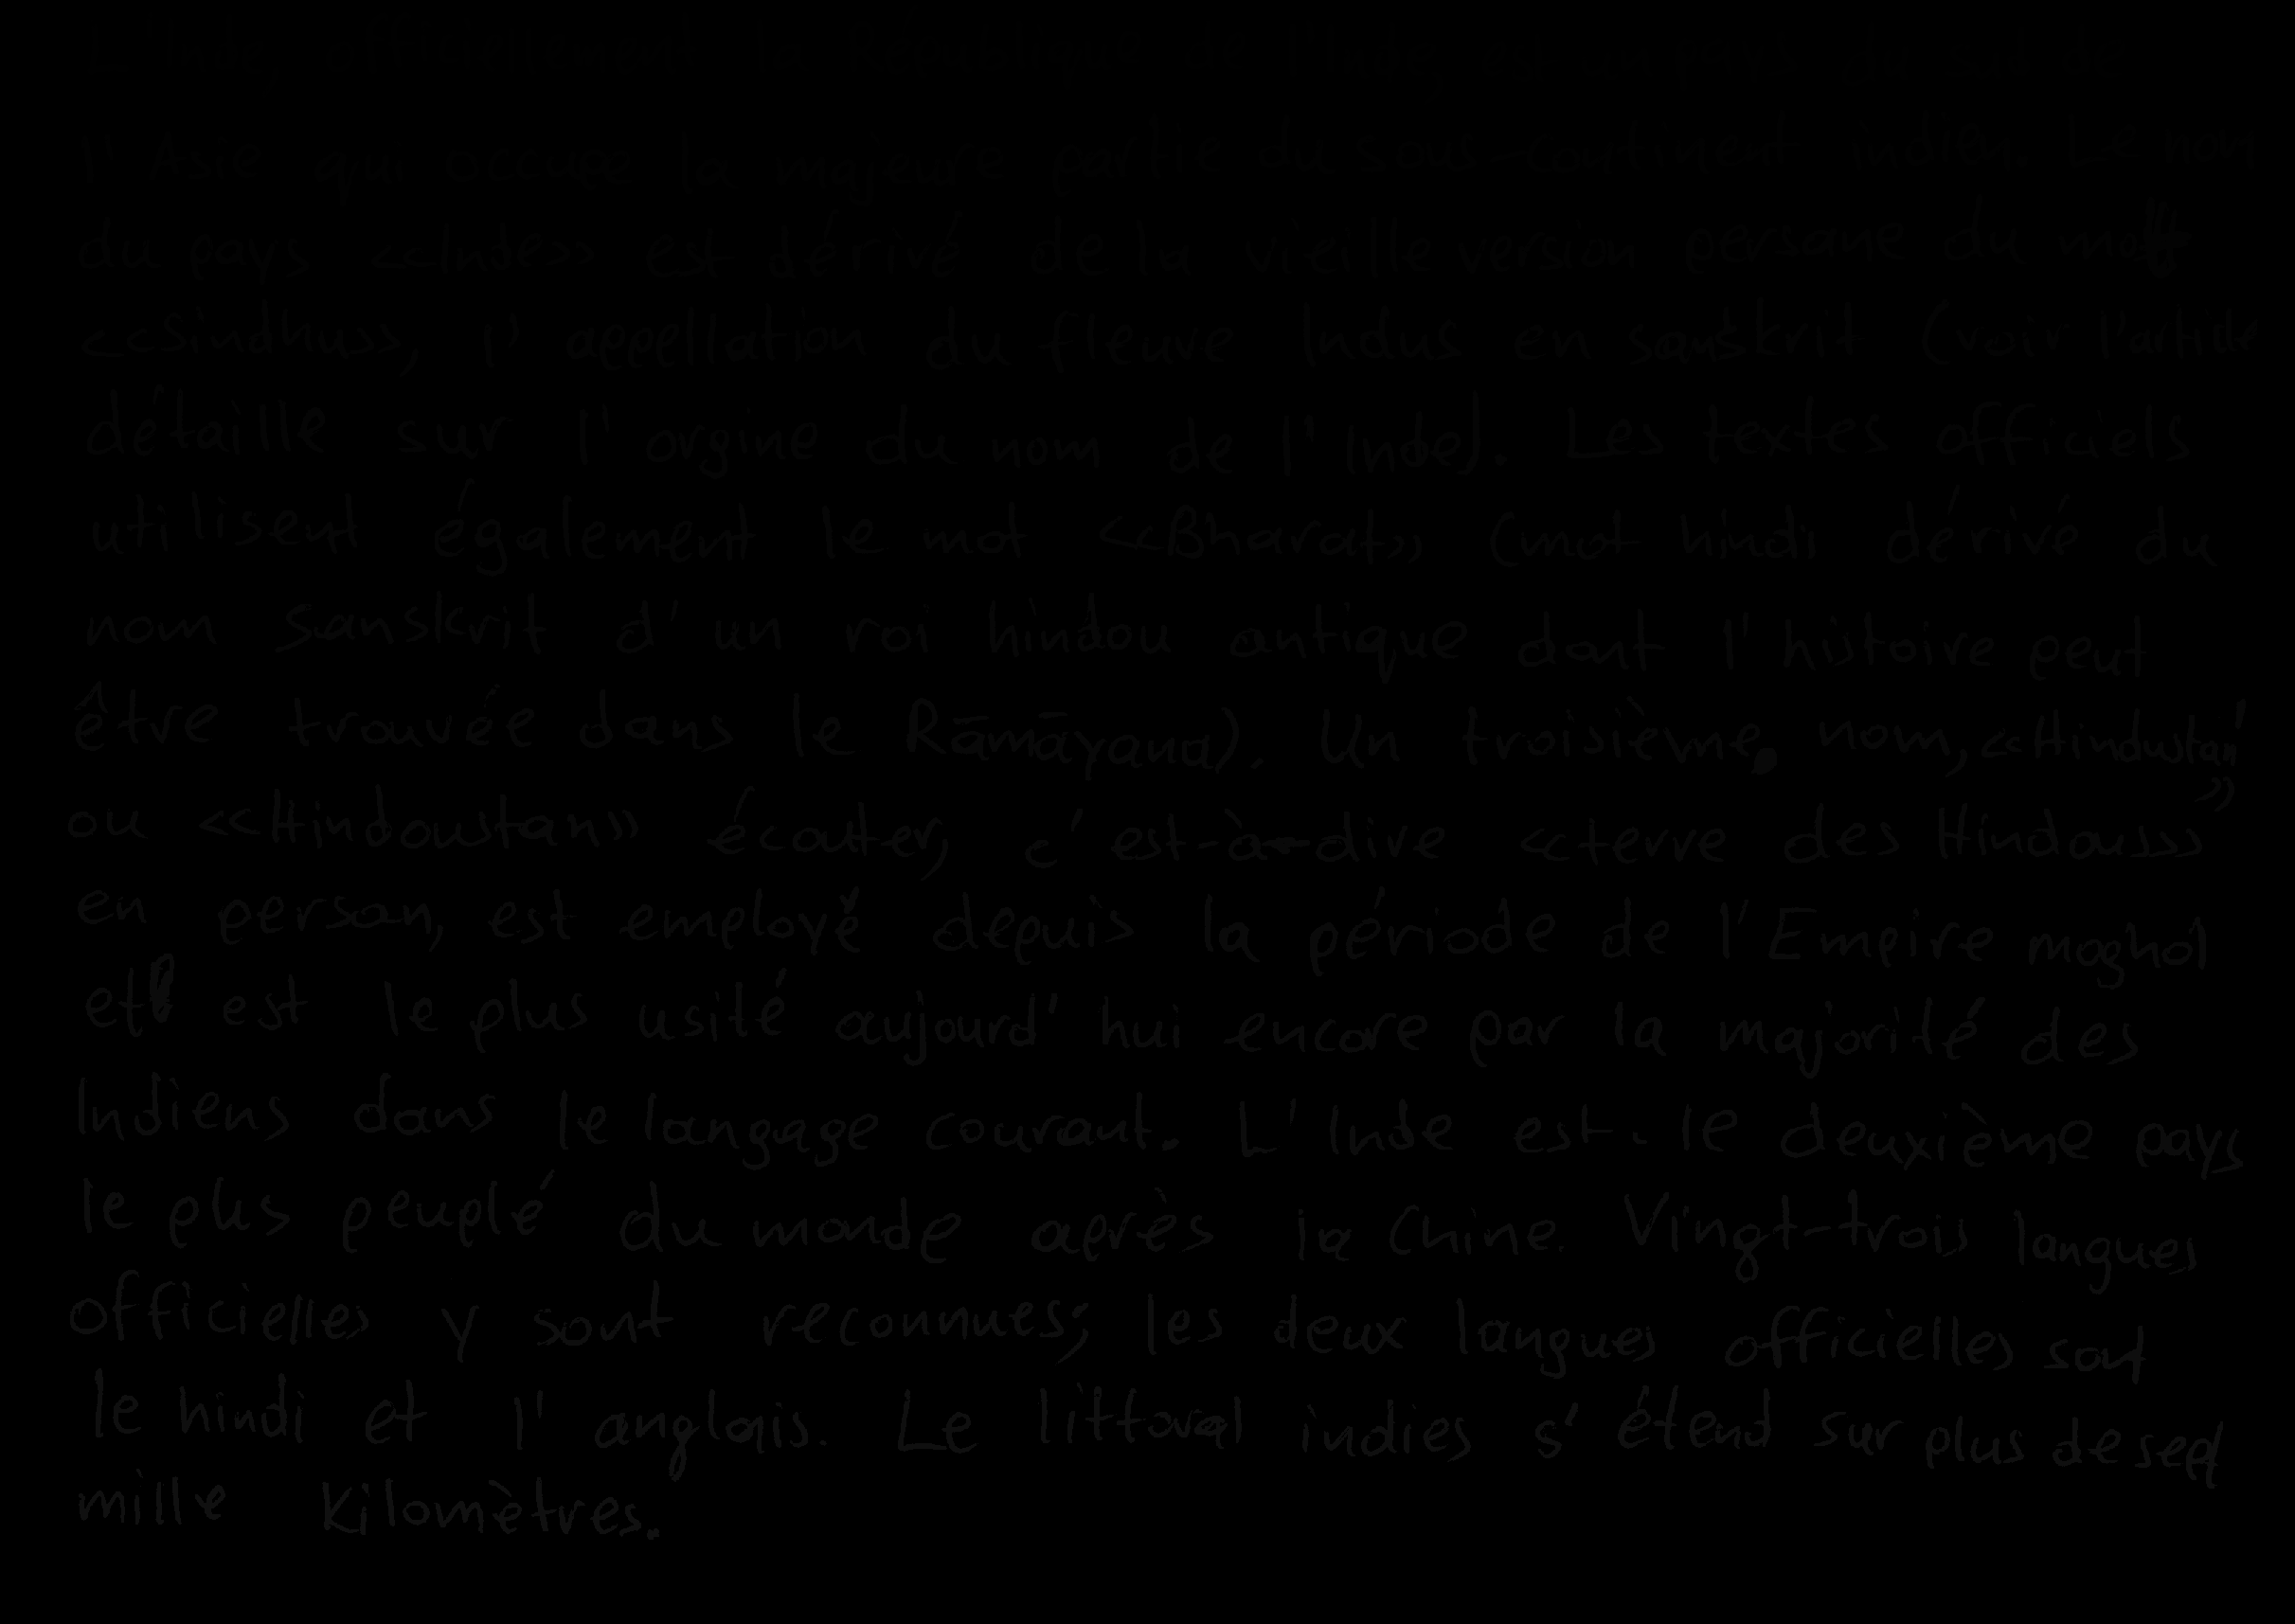 L'Inde, officiellement la République de l'Inde, est un pays du sud de
l'Asie qui occupe la majeure partie du sous-continent indien. Le nom
du pays <<Inde>> est dérivé de la vieille version persane du mot
<<Sindhu>>, l'appellation du fleuve Indus en sanskrit (voir l'article
détaille sur l'orgine du nom de l'Inde). Les textes officiels
utilisent également le mot <<Bharat>> (mot hindi dérivé du
nom sanskrit d'un roi hindou antique dont l'histoire peut
être trouvée dans le Rāmāyana). Un troisième nom, <<Hindustan>>
ou <<Hindoustan>> écouter, c'est-à-dire <<terre des Hindous>>
en persan, est employé depuis la période de l'Empire moghol
et est le plus usité aujourd'hui encore par la majorité des
Indiens dans le langage courant. L'Inde est le deuxième pays
le plus peuplé du monde après la Chine. Vingt-trois langues
officielles y sont reconnues; les deux langues officielles sont
le hindi et l'anglais. Le littoral indies s'étend sur plus de sept
mille kilomètres.